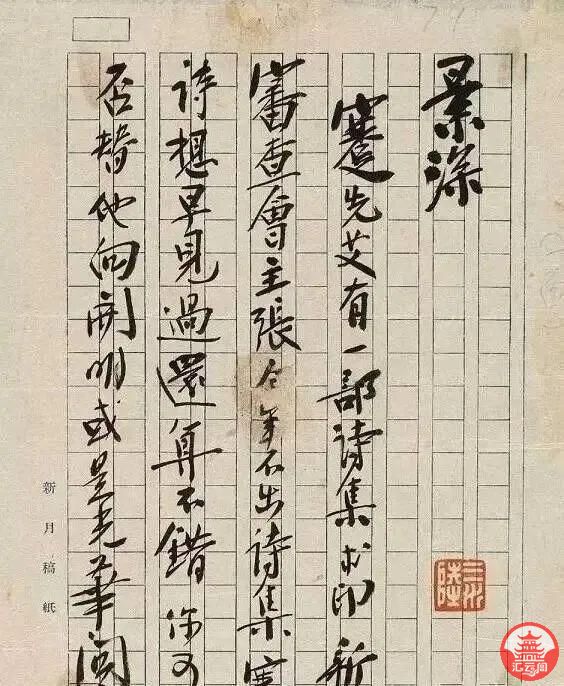 景深
蹇先艾有一部詩集求印新
審查會主張今年不出詩集蹇
詩想早見過還算不錯你可
否替他向開明或是光華問
新月稿紙